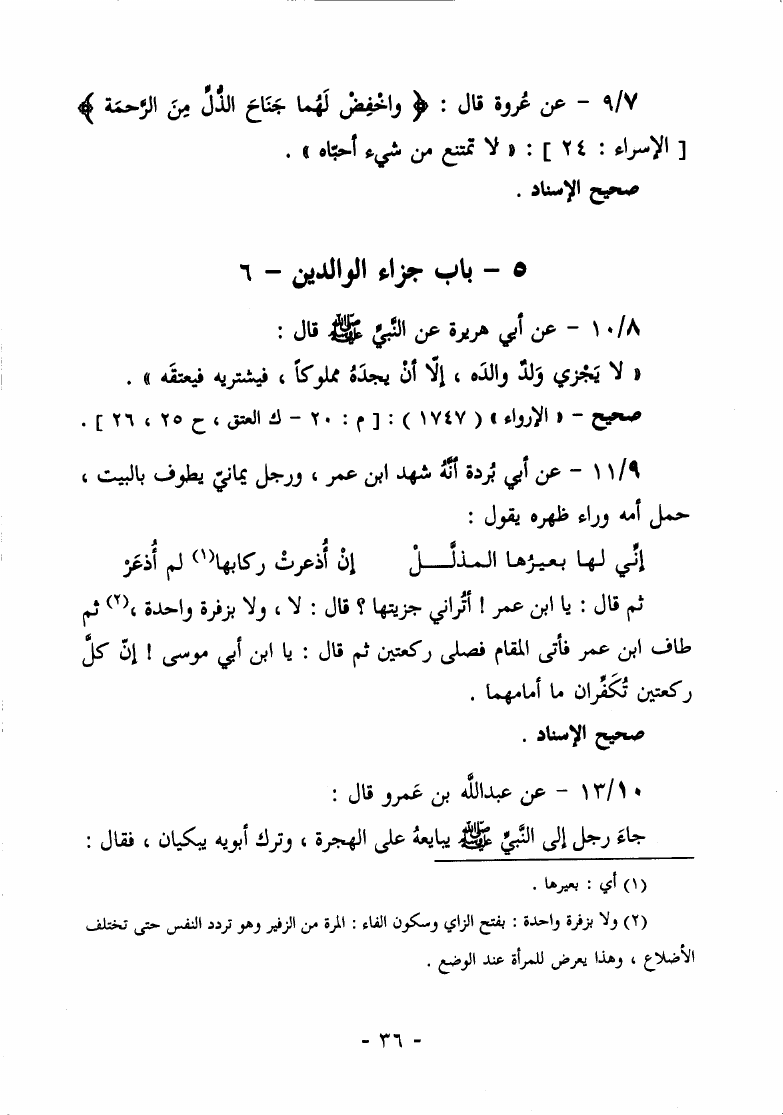 ٩/٧ - عن عُروة قال : ﴿ واخْفِضْ لَهُما جَنَاحَ الذُّلِّ مِنَ الرَّحمَة ﴾
[ الإسراء : ٢٤ ] : « لا تمتنع من شيء أحبّاه » .
صحيح الإسناد .
٥ - باب جزاء الوالدين - ٦
١٠/٨ - عن أبي هريرة عن النَّبيِّ ﷺ قال :
« لا يَجْزي وَلدٌ والدَه ، إلّا أنْ يجدَهُ مملوكاً ، فيشتريه فيعتقَه » .
صحيح - « الإرواء » ( ١٧٤٧ ) : [ م : ٢٠ - ك العتق ، ح ٢٥ ، ٢٦ ] .
١١/٩ - عن أبي بُردة أنَّهُ شهد ابن عمر ، ورجل يمانيّ يطوف بالبيت ،
حمل أمه وراء ظهره يقول :
إنِّي لـها بعيـرُها الـمذلَّـــلْ إنْ أُذعرتْ ركابها(١) لم أُذعَرْ
ثم قال : يا ابن عمر ! أتُراني جزيتها ؟ قال : لا ، ولا بزفرة واحدة ،(٢) ثم
طاف ابن عمر فأتى المقام فصلى ركعتين ثم قال : يا ابن أبي موسى ! إنّ كلَّ
ركعتين تُكَفِّران ما أمامهما .
صحيح الإسناد .
١٣/١٠ - عن عبداللَّه بن عَمرو قال :
جاءَ رجل إلى النَّبيِّ ﷺ يبايعهُ على الهجرة ، وترك أبويه يبكيان ، فقال :
(١) أي : بعيرها .
(٢) ولا بزفرة واحدة : بفتح الزاي وسكون الفاء : المرة من الزفير وهو تردد النفس حتى تختلف
الأضلاع ، وهذا يعرض للمرأة عند الوضع .
- ٣٦ -